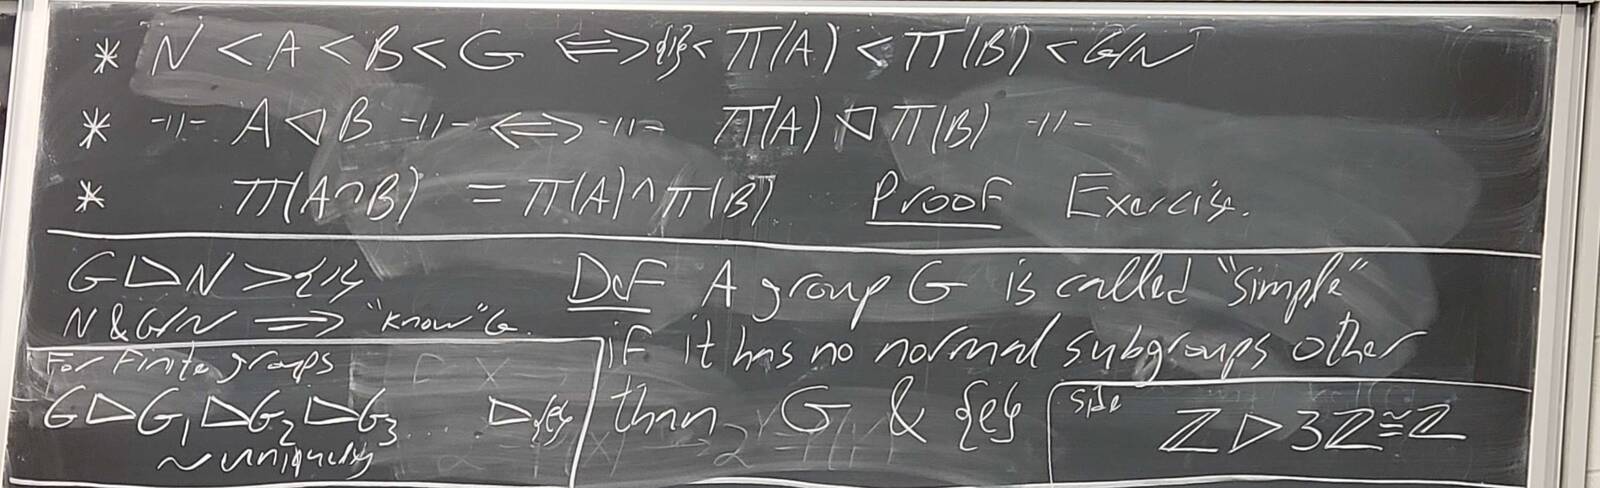 * N < A < B < G ⟺ {1} < π(A) < π(B) < G/N
* -11- A ◁ B -11- ⟺ -11- π(A) ◁ π(B) -11-
* π(A∩B) = π(A)∩π(B) Proof Exercise.
G ▷ N > {1}
N & G/N ⟹ "know" G.
For Finite groups
G ▷ G₁ ▷ G₂ ▷ G₃ ... ▷ {e}
~ uniquely
Def A group G is called "simple"
if it has no normal subgroups other
than G & {e}
side
ℤ ▷ 3ℤ ≅ ℤ